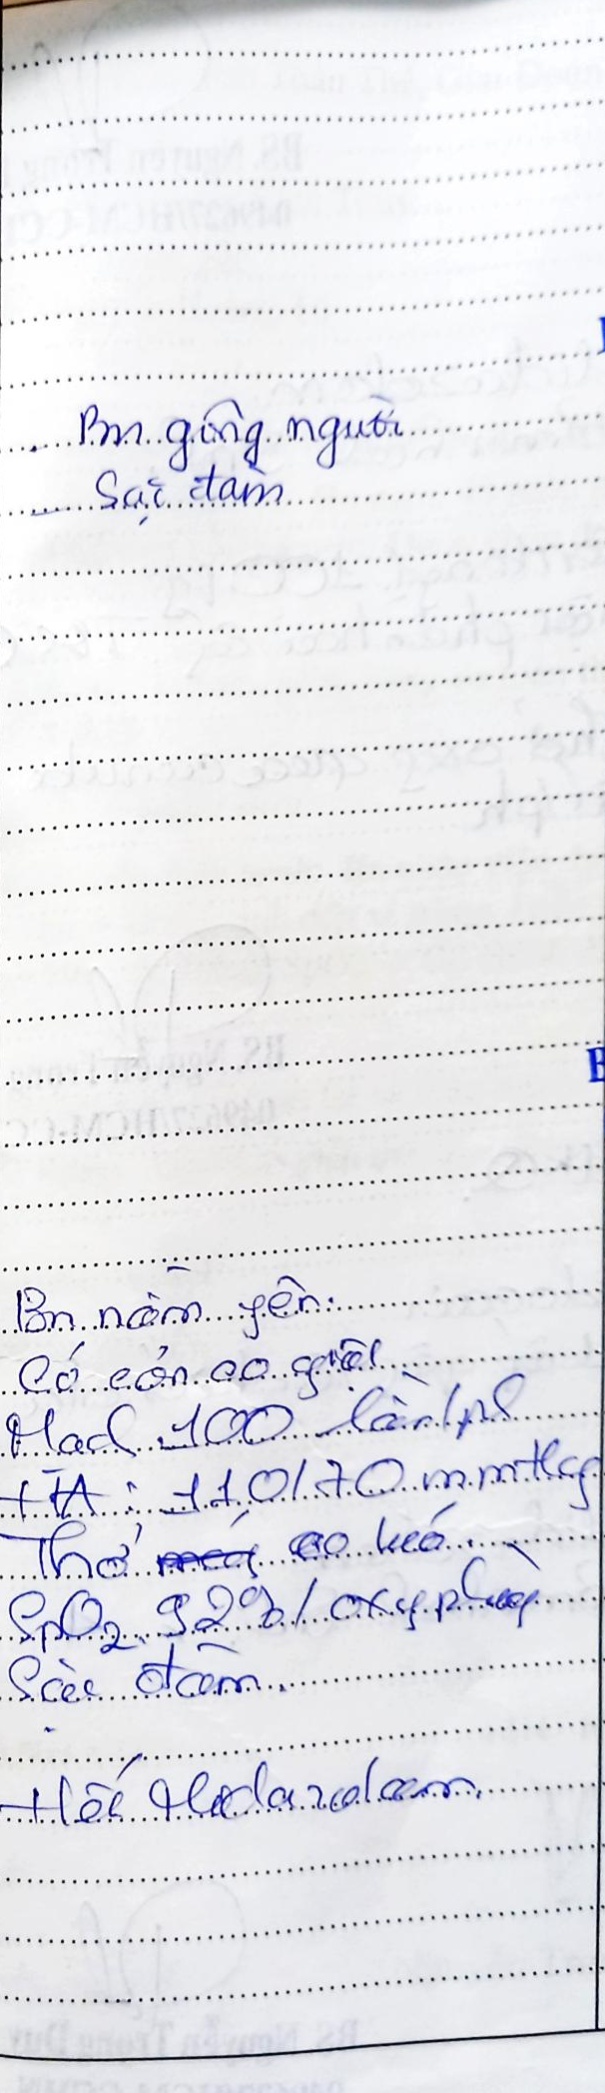 Bn gồng người
Sặc đàm
Bn nằm yên.
Có cơn co giật
Mạch 100 lần/ph
HA: 110/70 mmHg
Thở co kéo.
SpO2 92%/ oxy
Sặc đàm.
Hết Midazolam